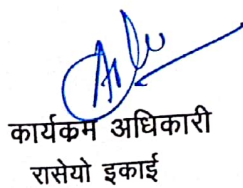 कार्यकम अधिकारी
रासेयो इकाई